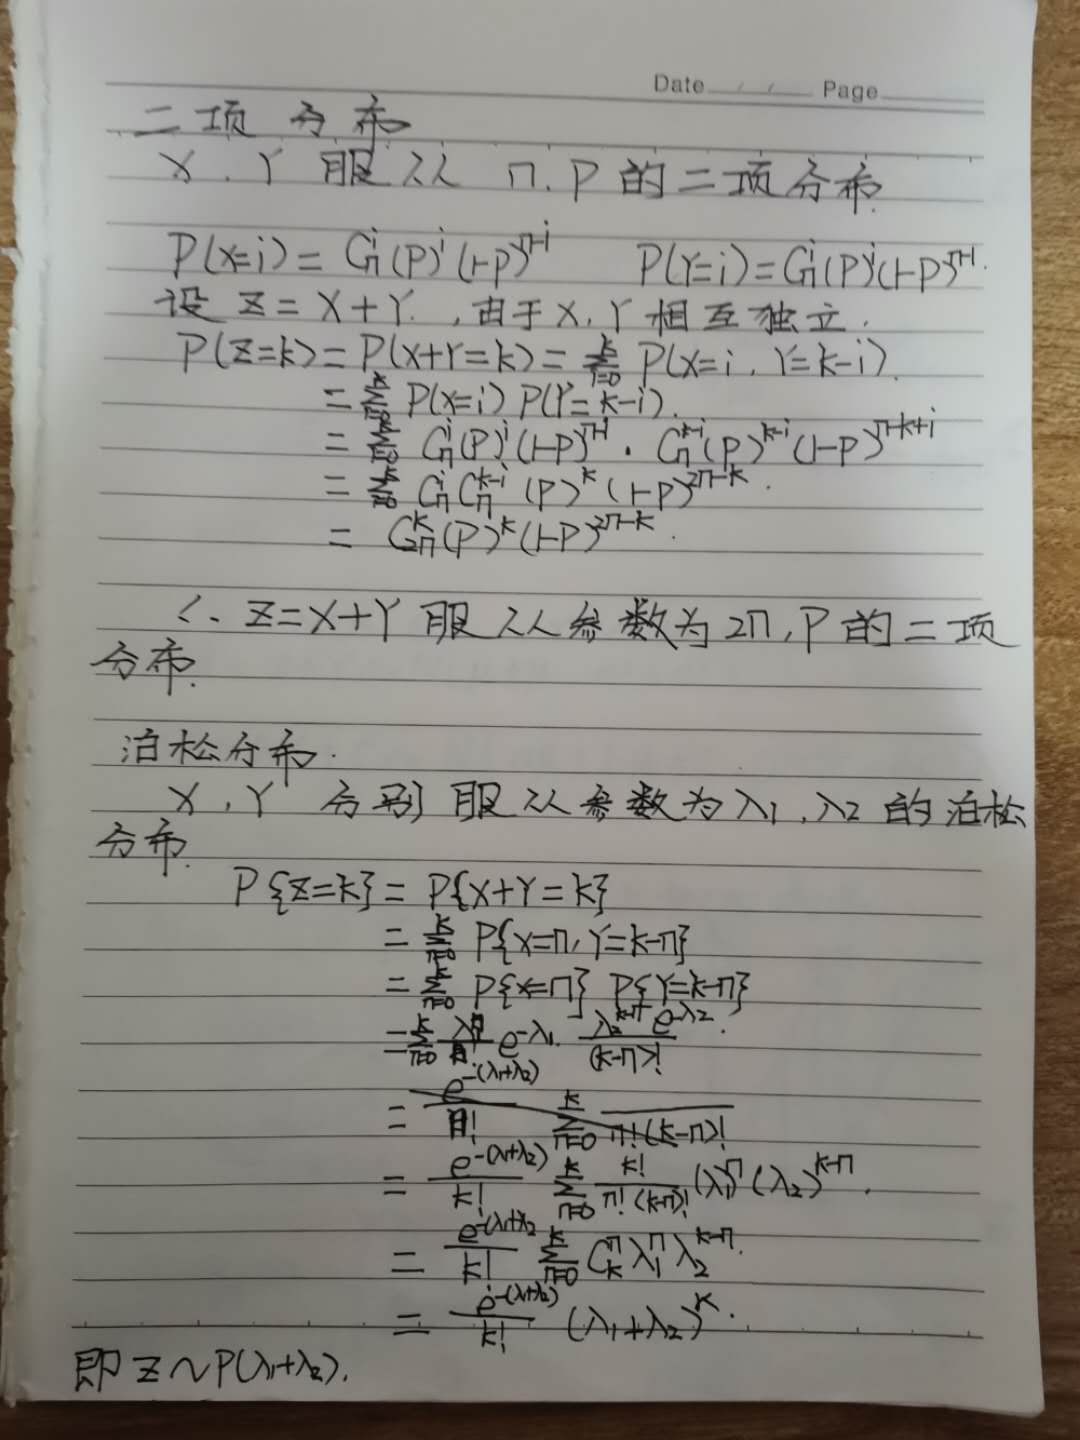 Date / / Page
二项分布
X.Y 服从 n.P 的二项分布.
P(X=i)=C_n^i(P)^i(1-P)^{n-i}    P(Y=i)=C_n^i(P)^i(1-P)^{n-i}.
设 Z=X+Y.,由于X,Y相互独立.
P(Z=k)=P(X+Y=k)=\sum_{i=0}^k P(X=i,Y=k-i).
=\sum_{i=0}^k P(X=i)P(Y=k-i).
=\sum_{i=0}^k C_n^i(P)^i(1-P)^{n-i}·C_n^{k-i}(P)^{k-i}(1-P)^{n-k+i}
=\sum_{i=0}^k C_n^i C_n^{k-i}(P)^k(1-P)^{2n-k}.
=C_{2n}^k(P)^k(1-P)^{2n-k}.
∴ Z=X+Y服从参数为2n,P的二项
分布.
泊松分布.
X,Y 分别服从参数为λ1,λ2的泊松
分布.
P{Z=k}=P{X+Y=k}
=\sum_{n=0}^k P{X=n,Y=k-n}
=\sum_{n=0}^k P{X=n} P{Y=k-n}
=\sum_{n=0}^k \frac{λ_1^n}{n!}e^{-λ1}·\frac{λ_2^{k-n}e^{-λ2}}{(k-n)!}.
=\frac{e^{-(λ1+λ2)}}{n!} \sum_{n=0}^k \frac{}{n!(k-n)!}
=\frac{e^{-(λ1+λ2)}}{k!} \sum_{n=0}^k \frac{k!}{n!(k-n)!}(λ1)^n(λ2)^{k-n}.
=\frac{e^{-(λ1+λ2)}}{k!} \sum_{n=0}^k C_k^n λ_1^n λ_2^{k-n}.
=\frac{e^{-(λ1+λ2)}}{k!}(λ1+λ2)^k.
即 Z~P(λ1+λ2).